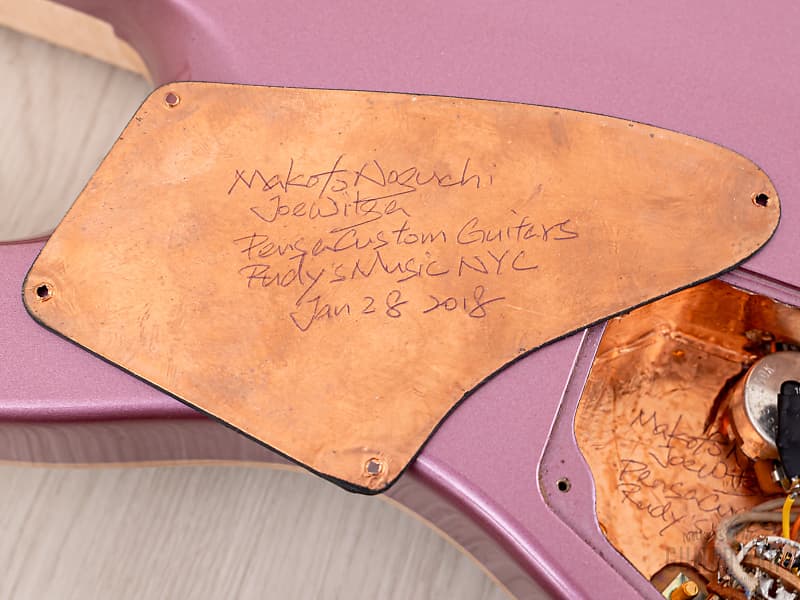 Makoto Noguchi
Joe Witsa
Pensa Custom Guitars
Rudy's Music NYC
Jan 28 2018
Makoto
Joe Wits
Pensa Cu
Rudy's